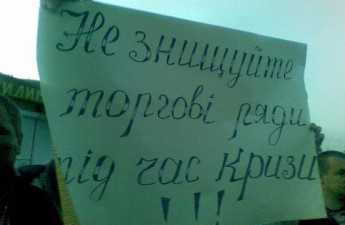 Не знищуйте
торгові ряди
під час кризи
!!!